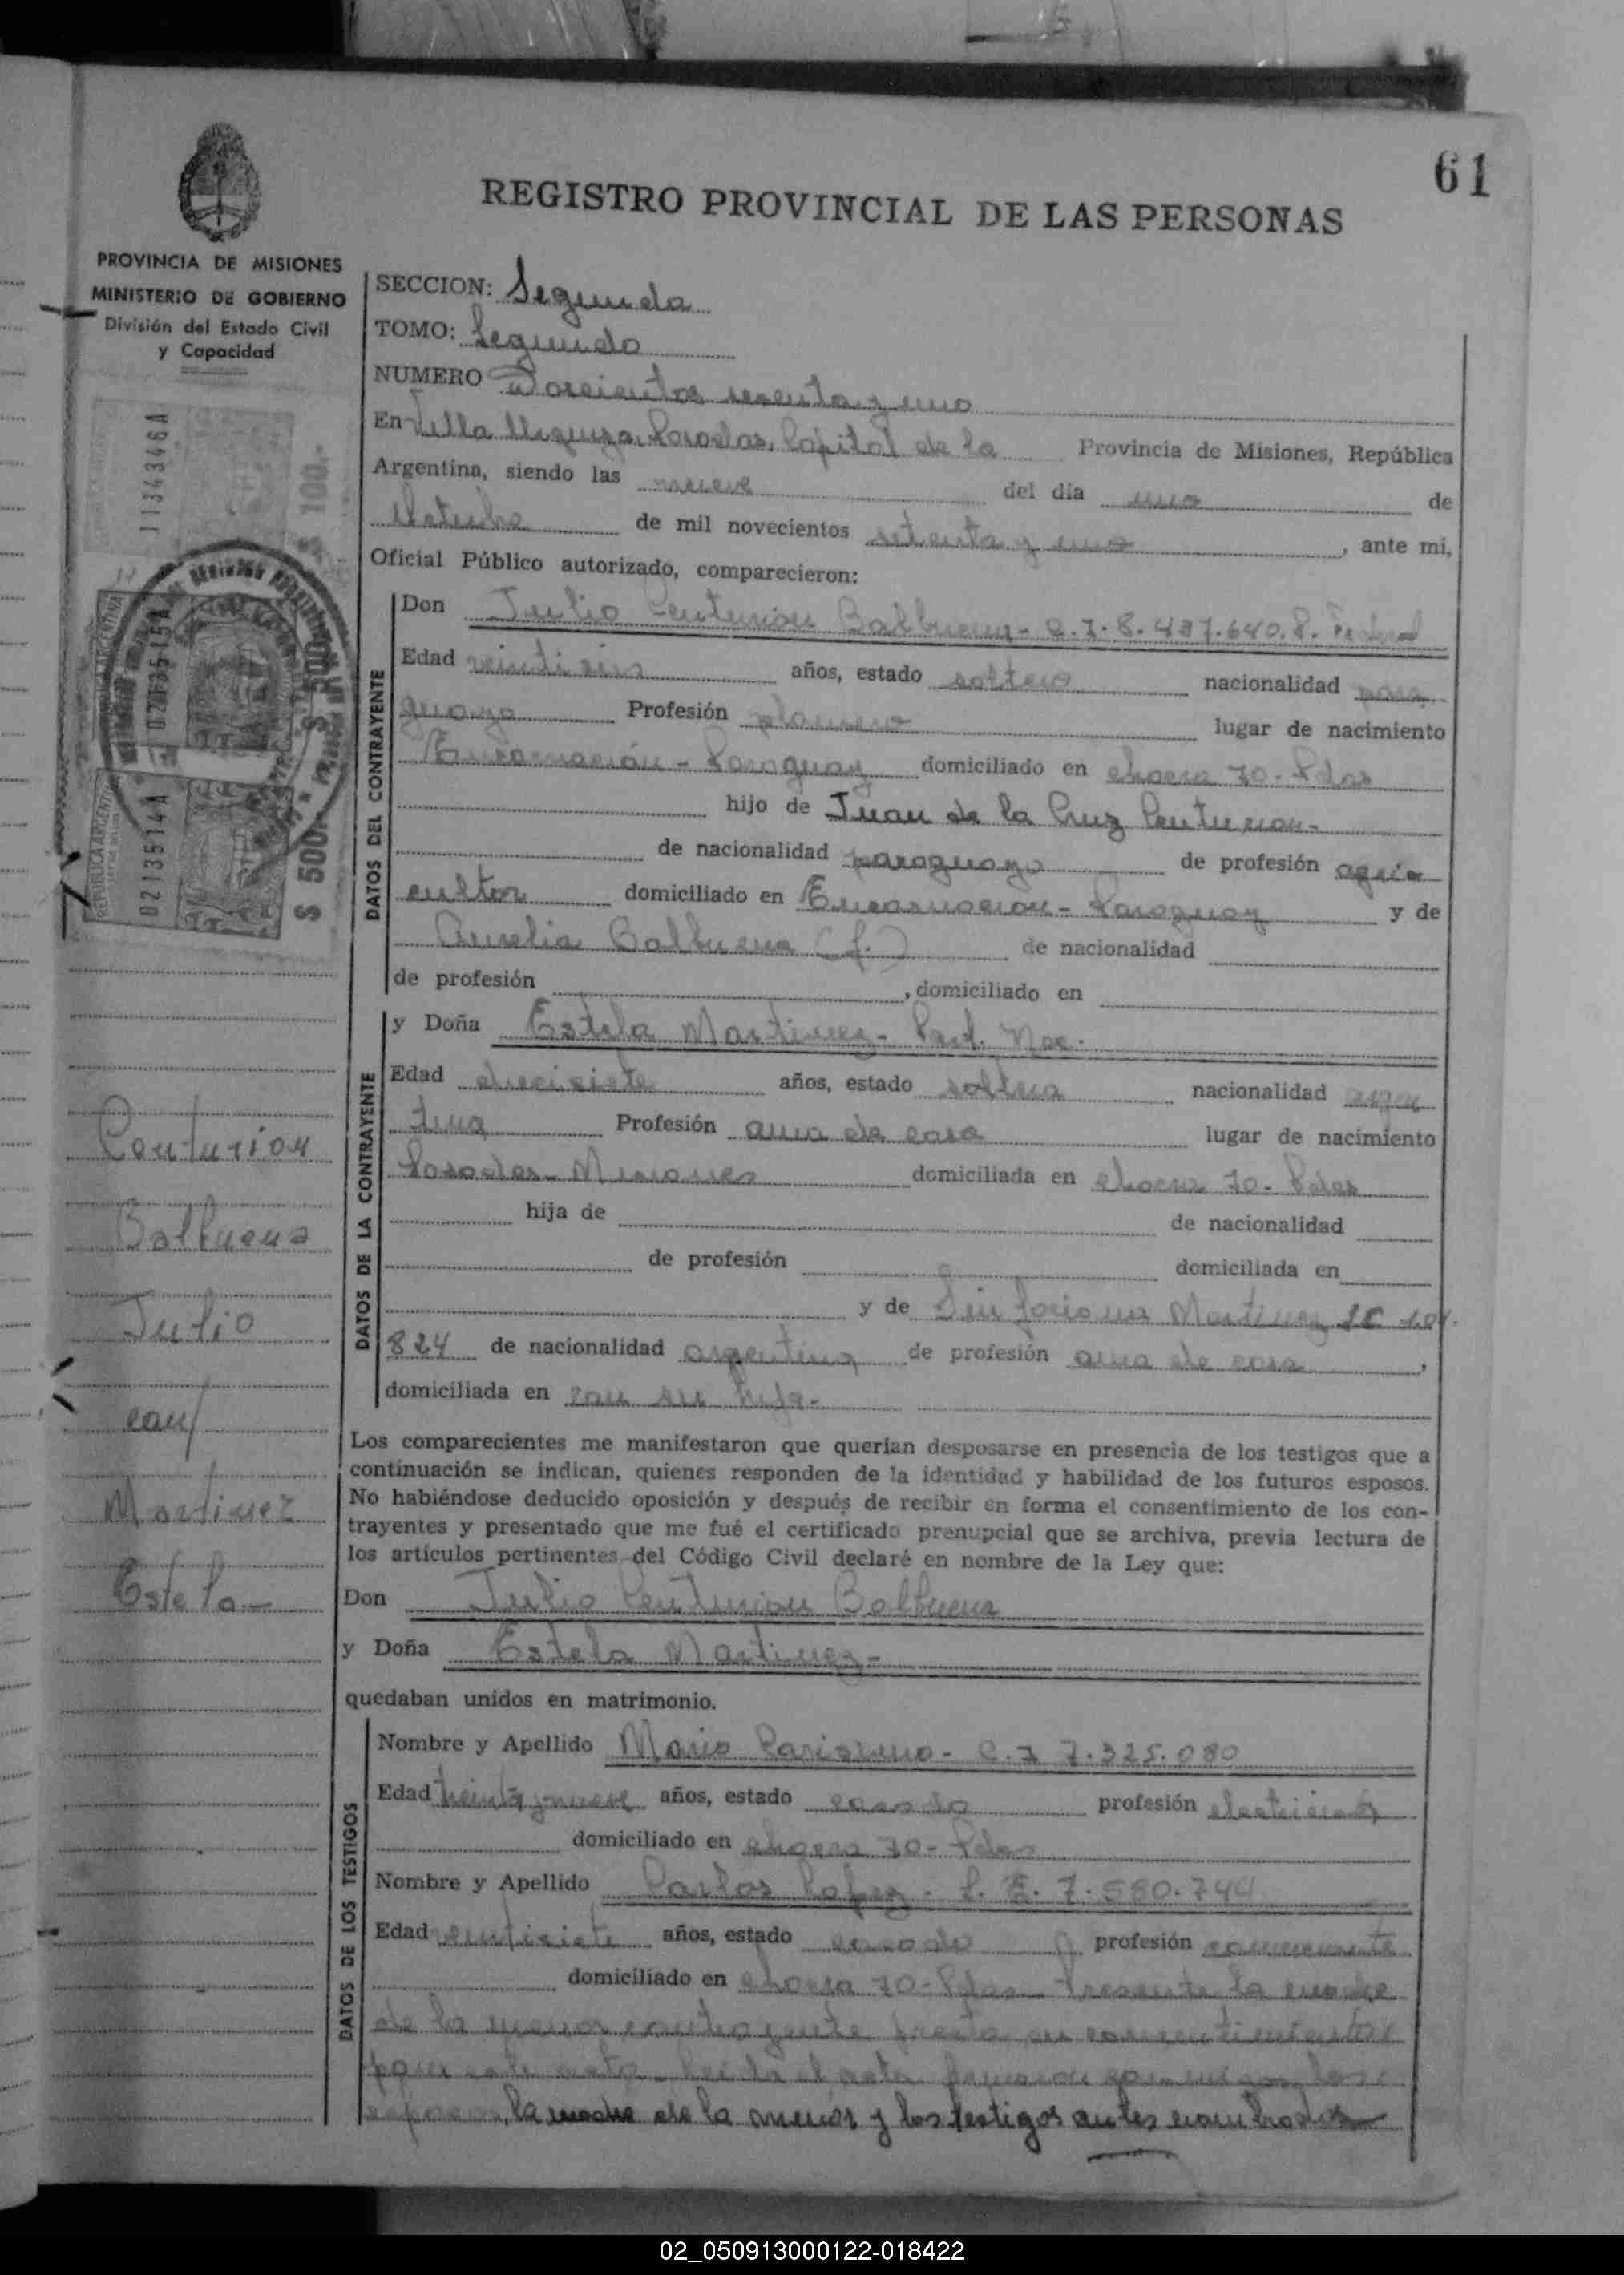 61
REGISTRO PROVINCIAL DE LAS PERSONAS
PROVINCIA DE MISIONES
MINISTERIO DE GOBIERNO
División del Estado Civil
y Capacidad
113434 6A
$ 100.-
0213515A
$ 500.-
0213514A
$ 500.-
REPUBLICA ARGENTINA
SECCION: Segunda
TOMO: Segundo
NUMERO Doscientos sesenta y uno
En Villa Urquiza, Posadas, Capital de la Provincia de Misiones, República
Argentina, siendo las nueve del día uno de
Octubre de mil novecientos setenta y uno, ante mi,
Oficial Público autorizado, comparecieron:
DATOS DEL CONTRAYENTE
Don Julio Centurion Balbuena - C.I. 8.437.640. P. Federal
Edad veintiseis años, estado soltero nacionalidad para
guayo Profesión plomero lugar de nacimiento
Encarnación - Paraguay domiciliado en chacra 70 - Pdas
hijo de Juan de la Cruz Centurion -
de nacionalidad paraguayo de profesión agri
cultor domiciliado en Encarnacion - Paraguay y de
Aurelia Balbuena (f.) de nacionalidad
de profesión , domiciliado en
DATOS DE LA CONTRAYENTE
y Doña Estela Martinez - Part. Nac.
Edad diecisiete años, estado soltera nacionalidad argen
tina Profesión ama de casa lugar de nacimiento
Posadas - Misiones domiciliada en chacra 70 - Pdas
hija de de nacionalidad
de profesión domiciliada en
y de Sinforiana Martinez
824 de nacionalidad argentina de profesión ama de casa,
domiciliada en con su hija -
Centurion
Balbuena
Julio
con/
Martinez
Estela -
Los comparecientes me manifestaron que querían desposarse en presencia de los testigos que a
continuación se indican, quienes responden de la identidad y habilidad de los futuros esposos.
No habiéndose deducido oposición y después de recibir en forma el consentimiento de los con-
trayentes y presentado que me fué el certificado prenupcial que se archiva, previa lectura de
los artículos pertinentes del Código Civil declaré en nombre de la Ley que:
Don Julio Centurion Balbuena
y Doña Estela Martinez -
quedaban unidos en matrimonio.
DATOS DE LOS TESTIGOS
Nombre y Apellido Mario - C.I 7.325.080
Edad treinta y nueve años, estado casado profesión electricista
domiciliado en chacra 70 - Pdas
Nombre y Apellido Carlos Lopez - L. E. 7.580.744
Edad veintisiete años, estado casado profesión comerciante
domiciliado en chacra 70 - Pdas - Presente la madre
de la menor contrayente presta su consentimiento
para este acto - leida el acta firmaron conmigo los
esposos, la madre de la menor y los testigos antes nombrados
02_050913000122-018422